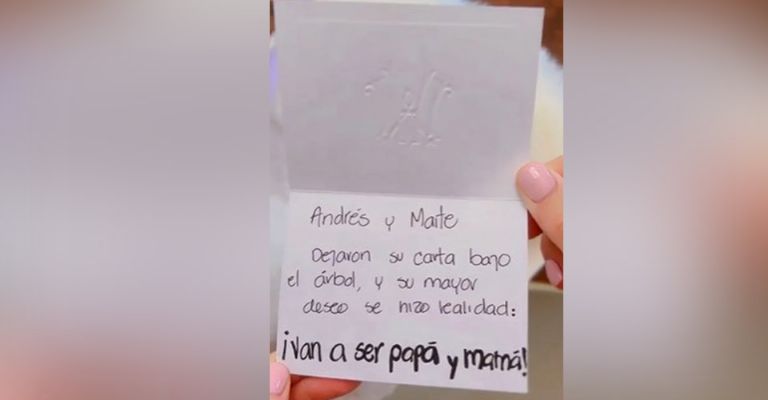 Andrés y Maite
Dejaron su carta bajo
el árbol, y su mayor
deseo se hizo realidad:
¡Van a ser papá y mamá!